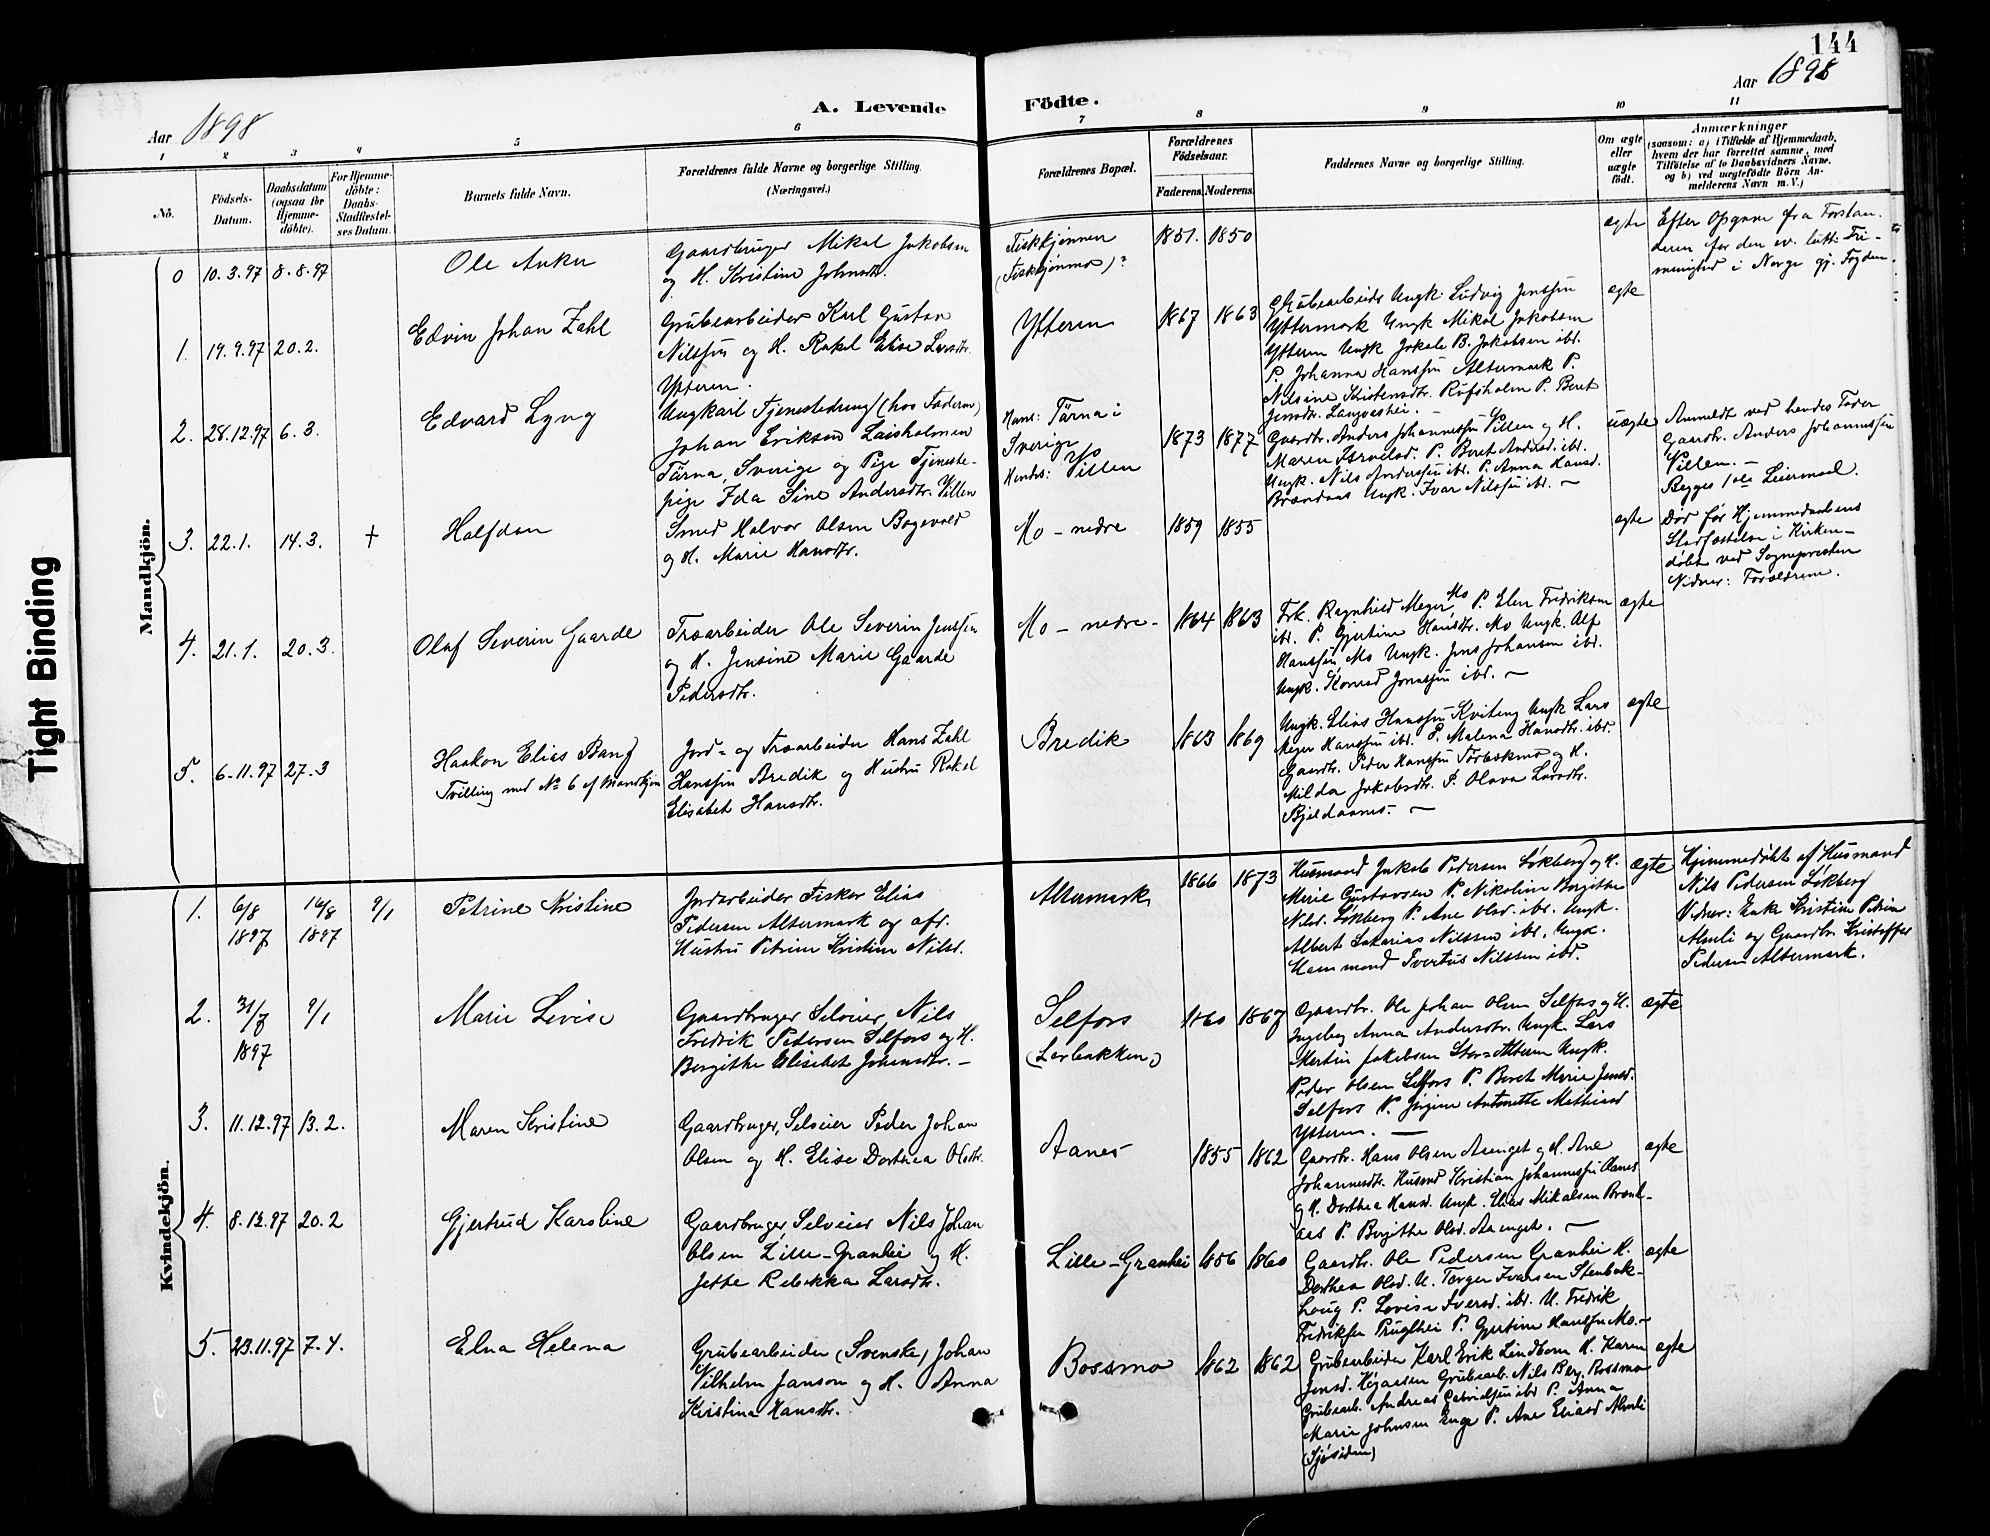 144
Aar 1898
A. Levende Födte.
Aar 1898
1 2 3 4 5 6 7 8 9 10 11
No.
Födsels-Datum.
Daabsdatum (ogsaa for Hjemme-döbte).
For Hjemme-döbte: Daabs-Stadfæstel-ses Datum.
Barnets fulde Navn.
Forældrenes fulde Navne og borgerlige Stilling. (Næringsvei.)
Forældrenes Bopæl.
Forældrenes Födselsaar.
Faderens. Moderens.
Faddernes Navne og borgerlige Stilling.
Om ægte eller uægte födt.
Anmærkninger
(saasom: a) i Tilfælde af Hjemmedaab,
hvem der har forrettet samme, med
Tilföielse af to Daabsvidners Navne,
og b) ved uægtefödte Börn An-
melderens Navn m. V.)
Mandkjön.
0 10.3.97 8.8.97 Ole Anku
Gaardbruger Mikal Jakobsen
og H. Kristine Johnsdtr.
Fiskkjønnen
(Fiskkjønmo)?
1851. 1850
ægte
Efter Opgave fra Forstan-
deren for den ev. luth. Fri-
menighed i Norge
1. 19.9.97 20.2. Edvin Johan Zahl
Grubearbeider Karl Gustav
Nilssen og H. Rakel Elise Larsdtr.
Ytteren.
Ytteren 1867 1863
Grubearbeider Ungk. Ludvig Jenssen
Yttermark Ungk Mikal Jakobsen
Ytteren Ungk Jakob B. Jakobsen ibd.
P. Johanna Hanssen Altermark P.
Nilsine Kristensdtr. Røfsholm P. Beret
Jensdtr. Langvashei. –
ægte
2. 28.12.97 6.3. Edvard Lyng
Ungkarl Tjenestedreng (hos Faderen)
Johan Eriksen Laisholmen
Tärna, Sverige og Pige Tjeneste-
pige Ida Sine Andersdtr. Villen
Hans: Tärna i
Sverige
Hendes: Villen
1873 1877
Gaardbr. Anders Johannessen Villen og H.
P. Beret Andersd. ibd.
Ungk. Nils Anderssen ibd. P. Anna Hansd.
Brændaas Ungk. Ivar Nilssen ibd. –
uægte
Anmeldt ved hendes Fader
Gaardbr. Anders Johannessen
Villen. –
Begges 1ste Leiermaal.
3. 22.1. 14.3. + Halfdan
Smed Halvor Olsen Bogevold
og H. Marie Hansdtr.
Mo – nedre 1859 1855
ægte
Død før Hjemmedaabens
Stadfæstelse i Kirken –
døbt ved Sognepresten
Vidner: Forældrene.
4. 21.1. 20.3. Olaf Severin Gaarde
Træarbeider Ole Severin Jenssen
og H. Jensine Marie Gaarde
Pedersdtr.
Mo – nedre – 1864 1863
Frk. Ragnhild Meyer Mo P. Elen Fredriksen
ibd. P. Gjertine Hansdtr. Mo Ungk. Alf
Hanssen, Mo Ungk. Jens Johansen ibd.
Ungk. Konrad Jonassen ibd. –
ægte
5. 6.11.97 27.3 Haakon Elias Bang
Tvilling med No 6 af Mandkjøn
Jord- og Træarbeider Hans Zahl
Hanssen Bredik og Hustru Rakel
Elisabet Hansdtr.
Bredik 1863 1869
Ungk. Elias Hanssen Kviteng Ungk Lars
Meyer Hanssen ibd. P. Malena Hansdtr. ibd.
Gaardbr. Peder Hanssen Forbækmo og H.
Milda Jakobsdtr. P. Olava Larsdtr.
Bjeldaanes. –
ægte
Kvindekjön.
1. 6/8 1897 16/8 1897 9/1 Petrine Kristine
Jordarbeider Fisker Elias
Pedersen Altermark og afd.
Hustru Petrine Kristine Nilsd.
Altermark 1866 1873
Husmand Jakob Pedersen Løkberg og H.
Marie Gustavsen P. Nikoline Bergithe
Nilsd. Løkberg P. Ane Olsd. ibd. Ungk.
Albert Sakarias Nilssen ibd. Ungk.
Hammond Ivertus Nilssen ibd.
ægte
Hjemmedøbt af Husmand
Nils Pedersen Løkberg
Vidner: Enke Kristine Petrine
Almli og Gaardbr. Kristoffer
Pedersen Altermark.
2. 31/7 1897 9/1 Marie Levise
Gaardbruger Selveier, Nils
Fredrik Pedersen Selfors og H.
Bergithe Elisebet Johansdtr. –
Selfors
(Lerbakken)
1860 1867
Gaardbr. Ole Johan Olsen Selfors og H.
Ingeborg Anna Andersdtr. Ungk. Lars
Martin Jakobsen Stor-Alteren Ungk.
Peder Olsen Selfors P. Beret Marie Jensd.
Selfors P. Jørgine Antonette Mathiasd
Ytteren. –
ægte
3. 11.12.97 13.2. Maren Kristine
Gaardbruger, Selveier Peder Johan
Olsen og H. Elise Dorthea Olsdtr.
Aanes 1855 1862
Gaardbr. Hans Olsen Aaenget og H. Ane
Johannesdtr. Husmd Kristian Johannessen Aanes
og H. Dorthea Hansd. Ungk. Elias Mikalsen Brænd-
aas P. Bergithe Olsd. Aaenget. –
ægte
4. 8.12.97 20.2 Gjertrud Karoline
Gaardbruger Selveier Nils Johan
Olsen Lille-Granhei og H.
Jette Rebekka Larsdtr.
Lille-Granhei 1856 1860
Gaardbr. Ole Pedersen Granhei H.
Dorthea Olsd. U. Torger Ivarsen Stenbæk-
houg P. Lovise Iversd. ibd. U. Fredrik
Fredriksen P. Gjertine Hanssen Mo. –
ægte
5. 23.11.97 7.4. Elna Helena
Grubearbeider (Svenske) Johan
Vilhelm Janson og H. Anna
Kristina Hansdtr.
Bossmo 1862 1862
Grubearbeider Karl Erik Lindbom H. Karen
Jensd. Grubearb. Nils Berg, Bossmo
Grubearb. Andreas Gabrielsen ibd P. Anna
Marie Johnsen Enge P. Ane Eliasd Almli
(Sjøsiden)
ægte
Tight Binding